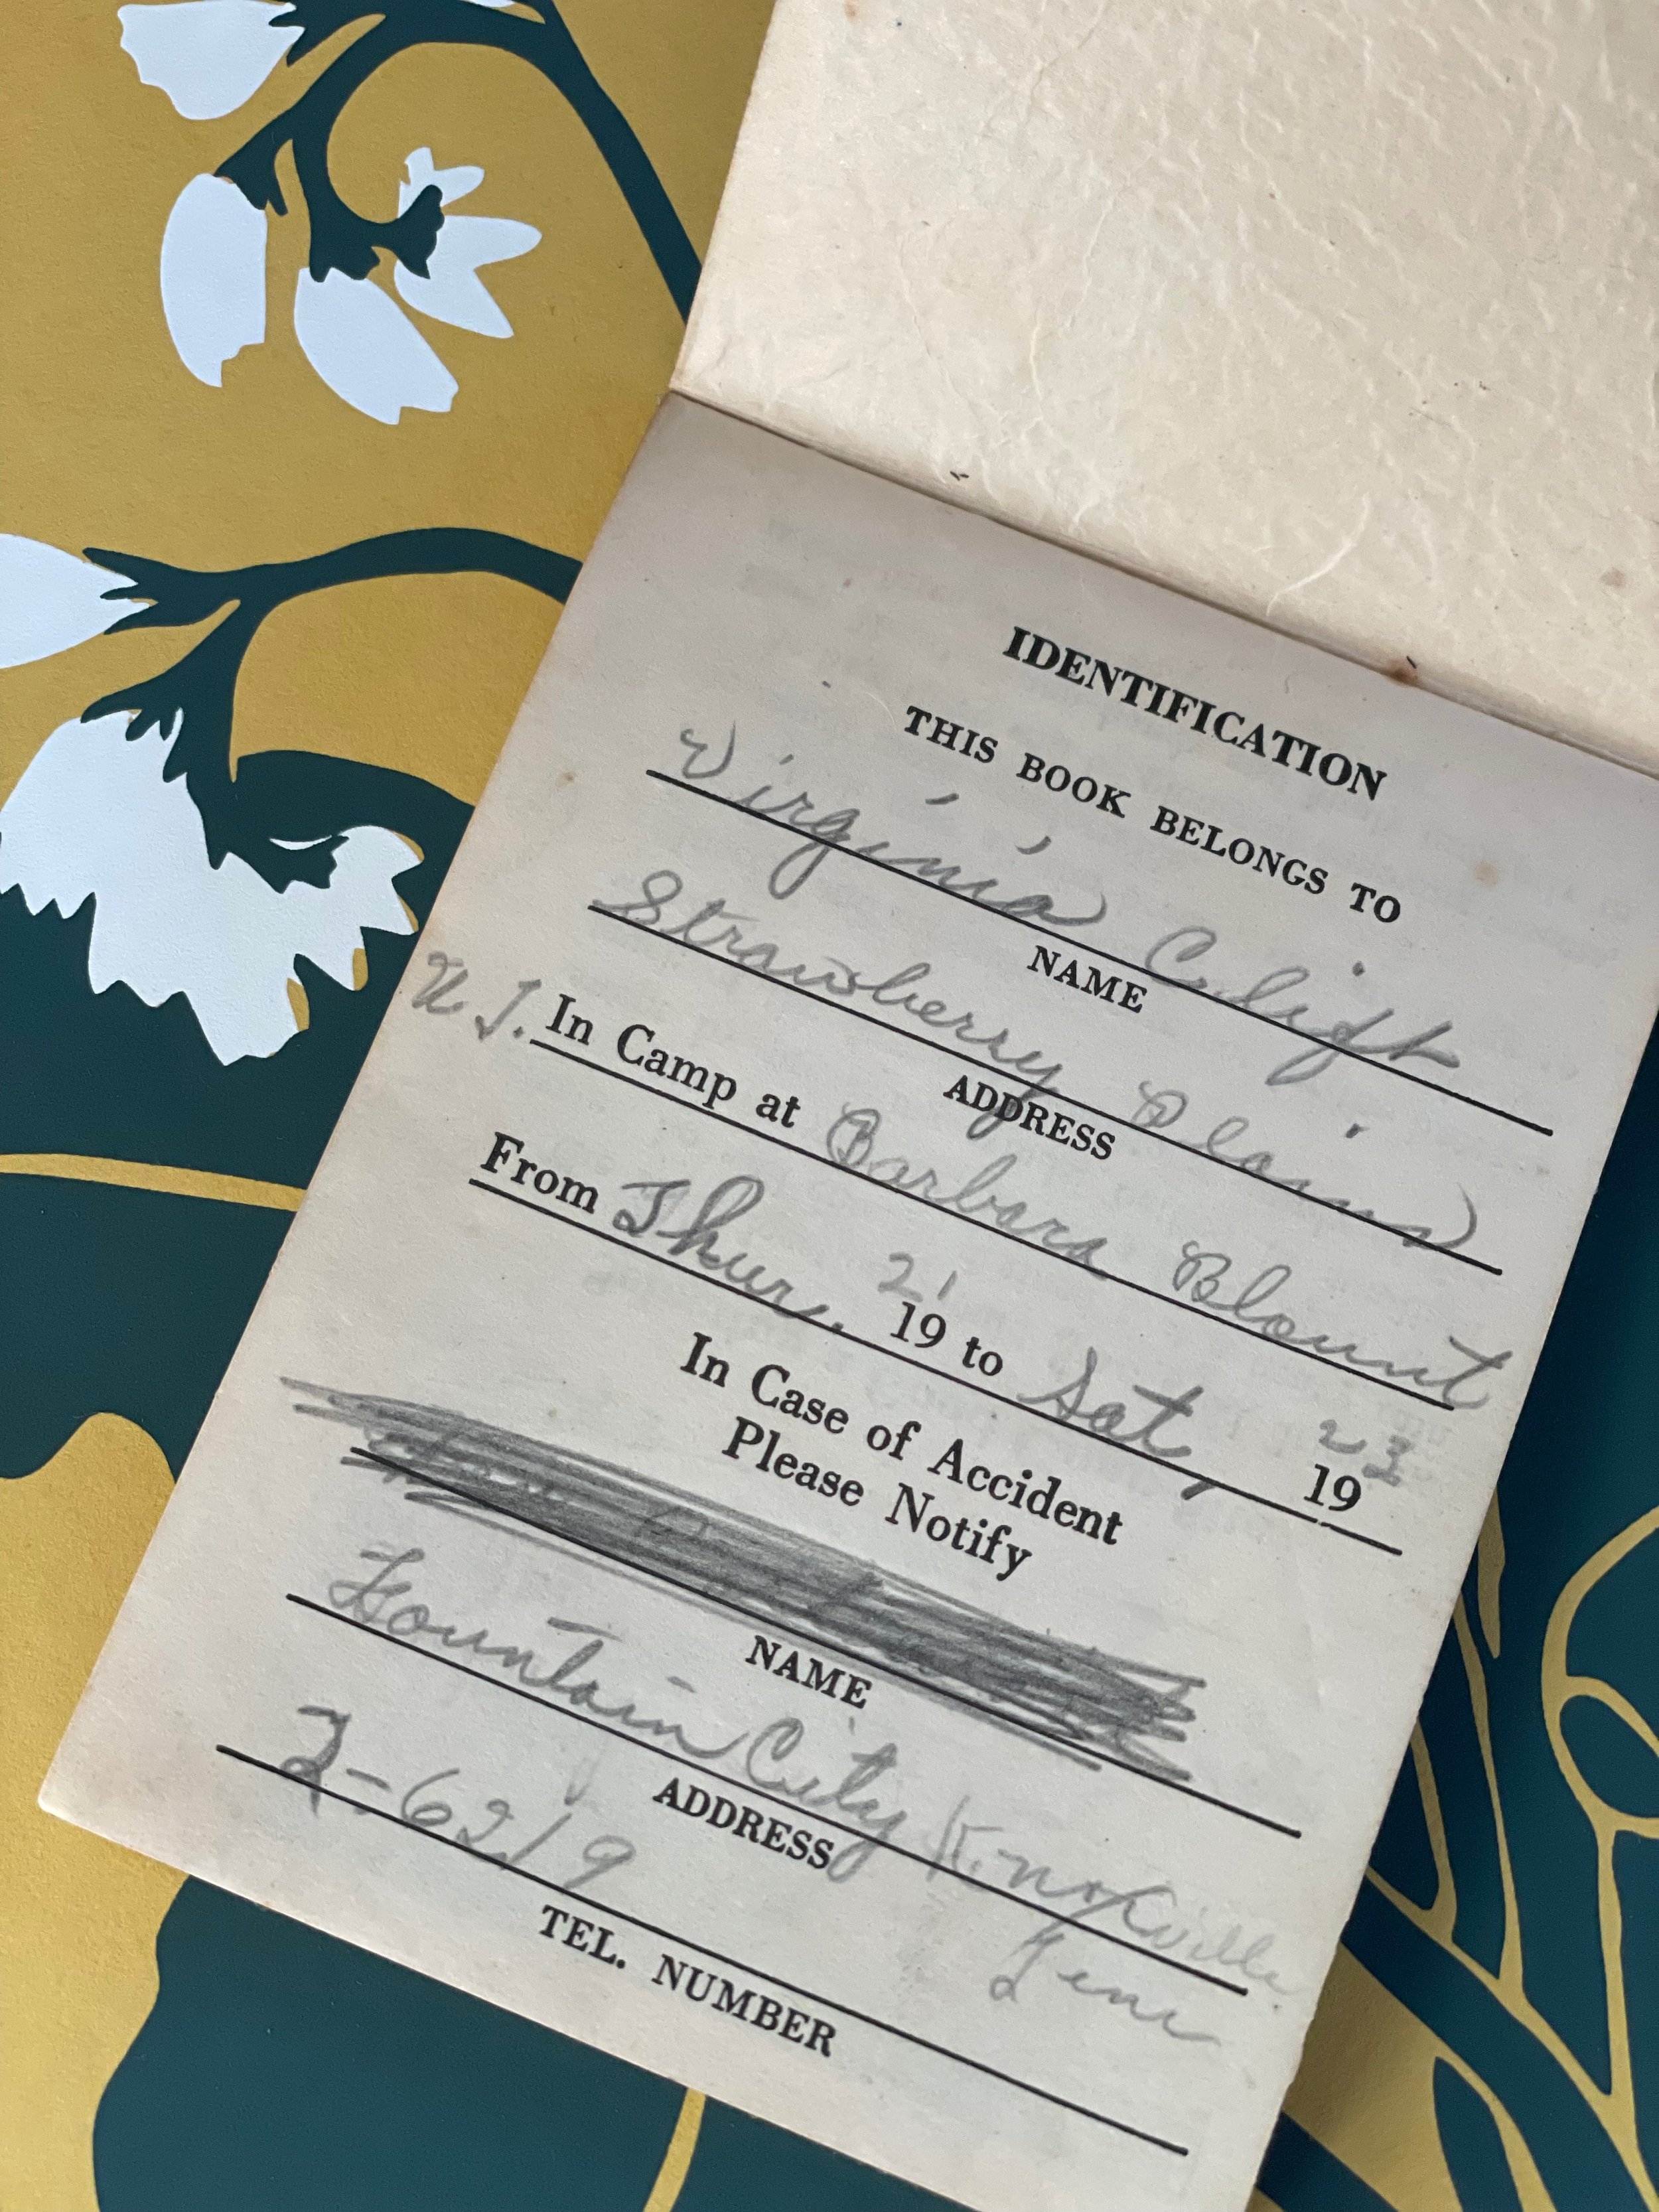 IDENTIFICATION
THIS BOOK BELONGS TO
Virginia Clift
NAME
Strawberry Plains
ADDRESS
In Camp at Barbara Blount
From Thur. 21 19 to Sat, 19 23
In Case of Accident
Please Notify
NAME
Fountain City Knoxville
ADDRESS
Tenn
2-6219
TEL. NUMBER